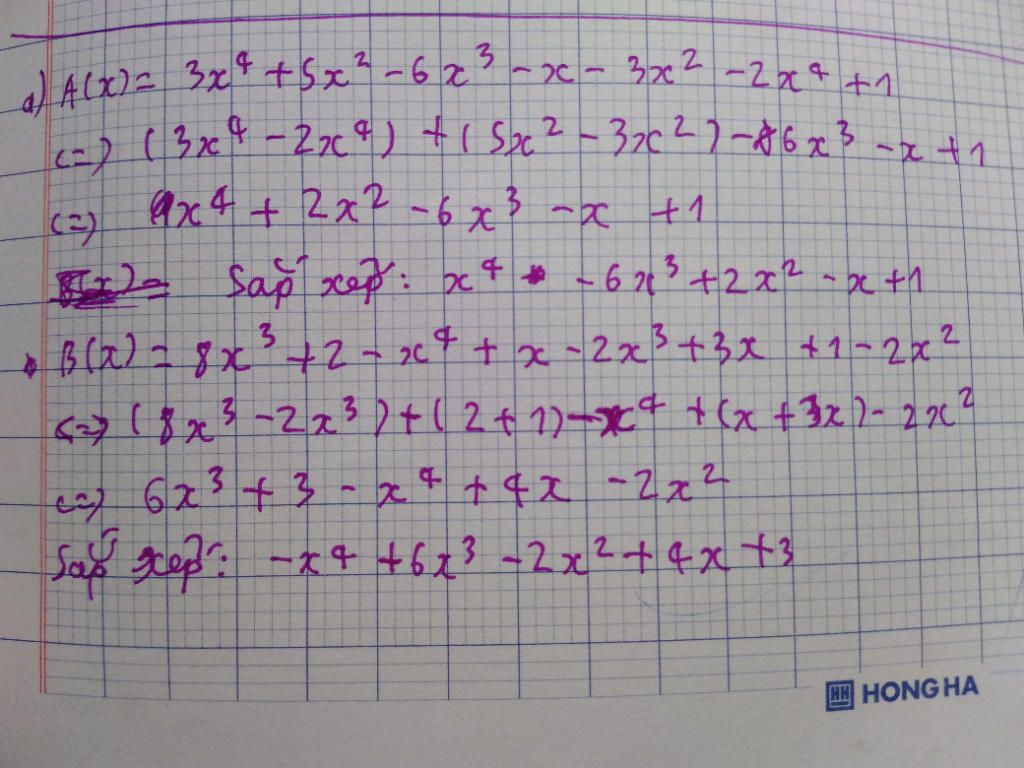 a) A(x) = 3x⁴ + 5x² - 6x³ - x - 3x² - 2x⁴ + 1
<=> (3x⁴ - 2x⁴) + (5x² - 3x²) - 6x³ - x + 1
<=> x⁴ + 2x² - 6x³ - x + 1
Sắp xếp: x⁴ - 6x³ + 2x² - x + 1
B(x) = 8x³ + 2 - x⁴ + x - 2x³ + 3x + 1 - 2x²
<=> (8x³ - 2x³) + (2 + 1) - x⁴ + (x + 3x) - 2x²
<=> 6x³ + 3 - x⁴ + 4x - 2x²
Sắp xếp: -x⁴ + 6x³ - 2x² + 4x + 3
HONG HA